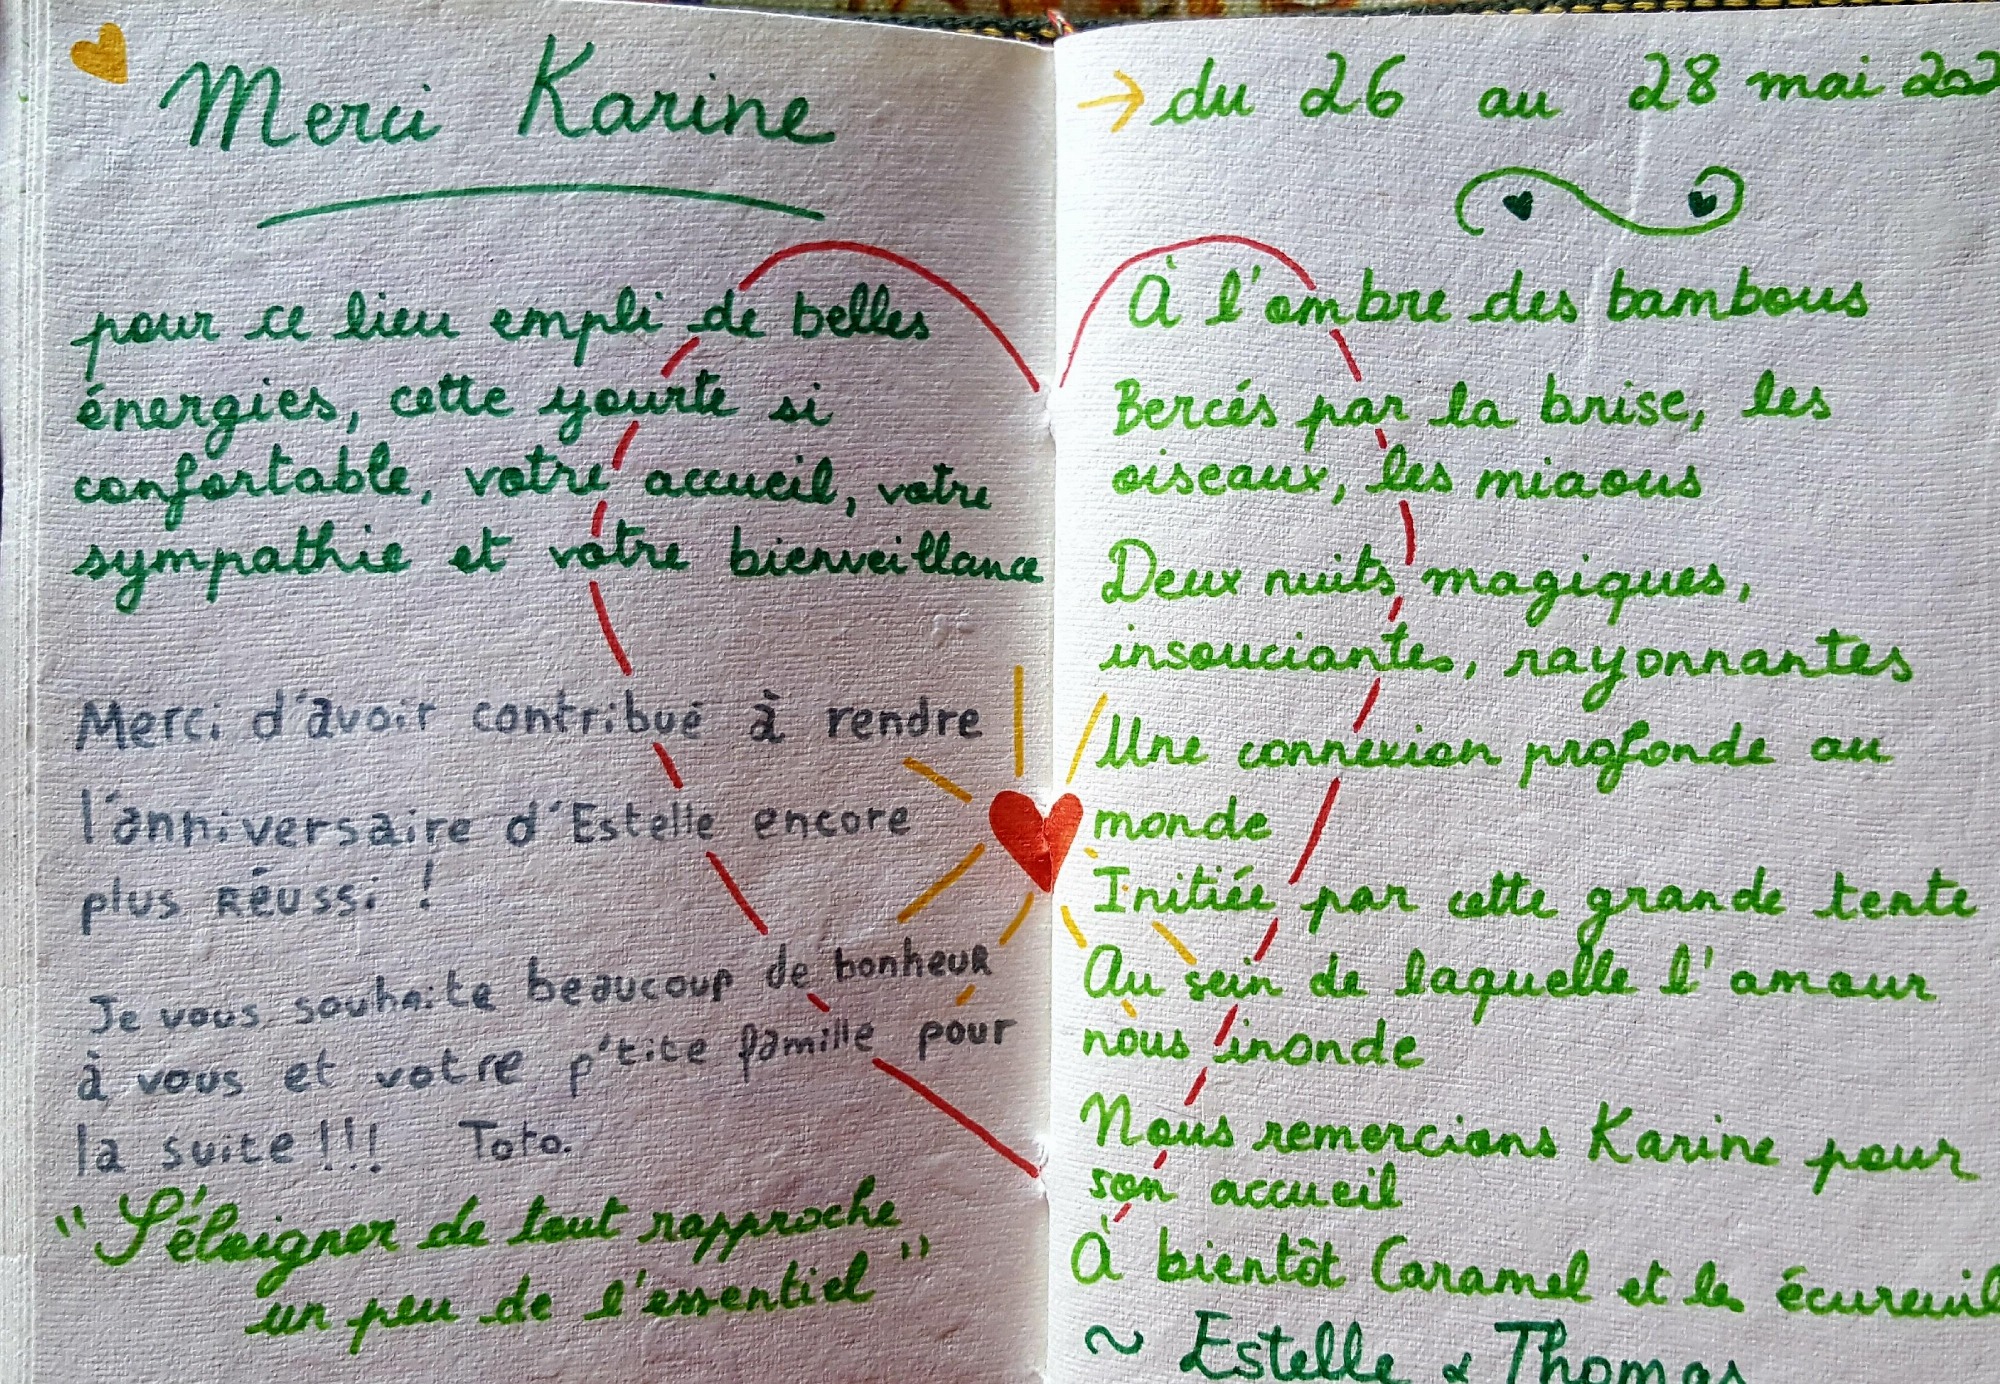 Merci Karine
pour ce lieu empli de belles
énergies, cette yourte si
confortable, votre accueil, votre
sympathie et votre bienveillance
Merci d'avoir contribué à rendre
l'anniversaire d'Estelle encore
plus réussi !
Je vous souhaite beaucoup de bonheur
à vous et votre p'tite famille pour
la suite!!! Toto.
"S'éloigner de tout rapproche
un peu de l'essentiel"
→ du 26 au 28 mai 202
À l'ombre des bambous
Bercés par la brise, les
oiseaux, les miaous
Deux nuits magiques,
insouciantes, rayonnantes
Une connexion profonde au
monde
Initiée par cette grande tente
Au sein de laquelle l'amour
nous inonde
Nous remercions Karine pour
son accueil
À bientôt Caramel et les écureuil
~ Estelle & Thomas